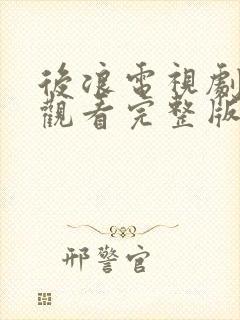 後浪電視劇
觀看完整版
邢警官